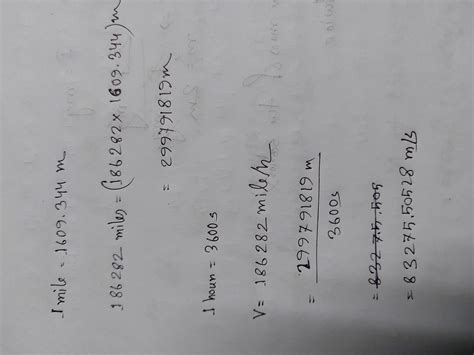 1 mile = 1609.344 m
186282 miles = (186282 × 1609.344) m
= 299791819 m
1 hour = 3600 s
V = 186282 mile/h
= 299791819 m
3600 s
= 83275.50528 m/s